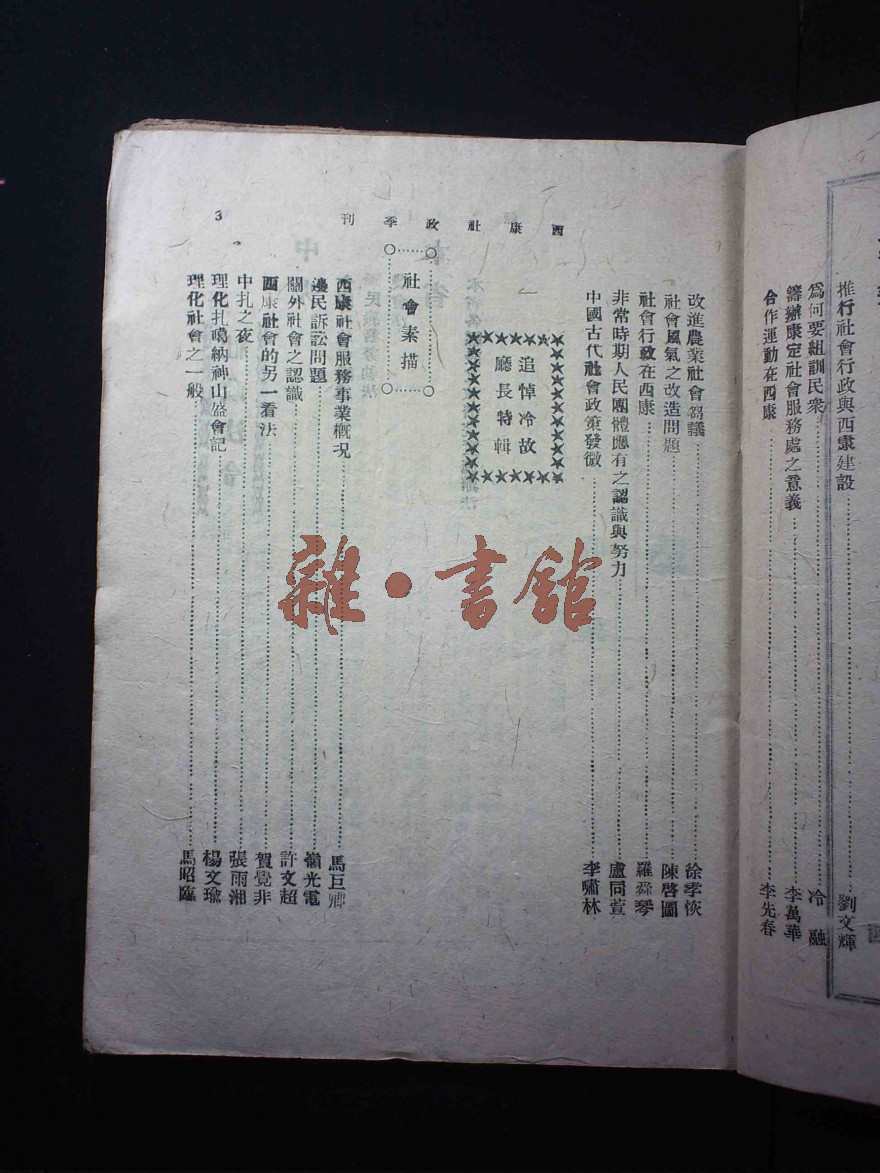 推行社會行政與西康建設……劉文輝
爲何要組訓民衆……冷融
籌辦康定社會服務處之意義……李萬華
合作運動在西康……李先春
西康社政季刊
3
改進農業社會芻議……徐孝恢
社會風氣之改造問題……陳啓圖
社會行政在西康……羅舜琴
非常時期人民團體應有之認識與努力……盧同萱
中國古代社會政策發微……李嘯林
追悼冷故
廳長特輯
社會素描
西康社會服務事業概况……馬巨卿
邊民訴訟問題……嶺光電
關外社會之認識……許文超
西康社會的另一看法……賀覺非
中扎之夜……張雨湘
理化扎噶納神山盛會記……楊文瑜
理化社會之一般……馬昭臨
雜·書館